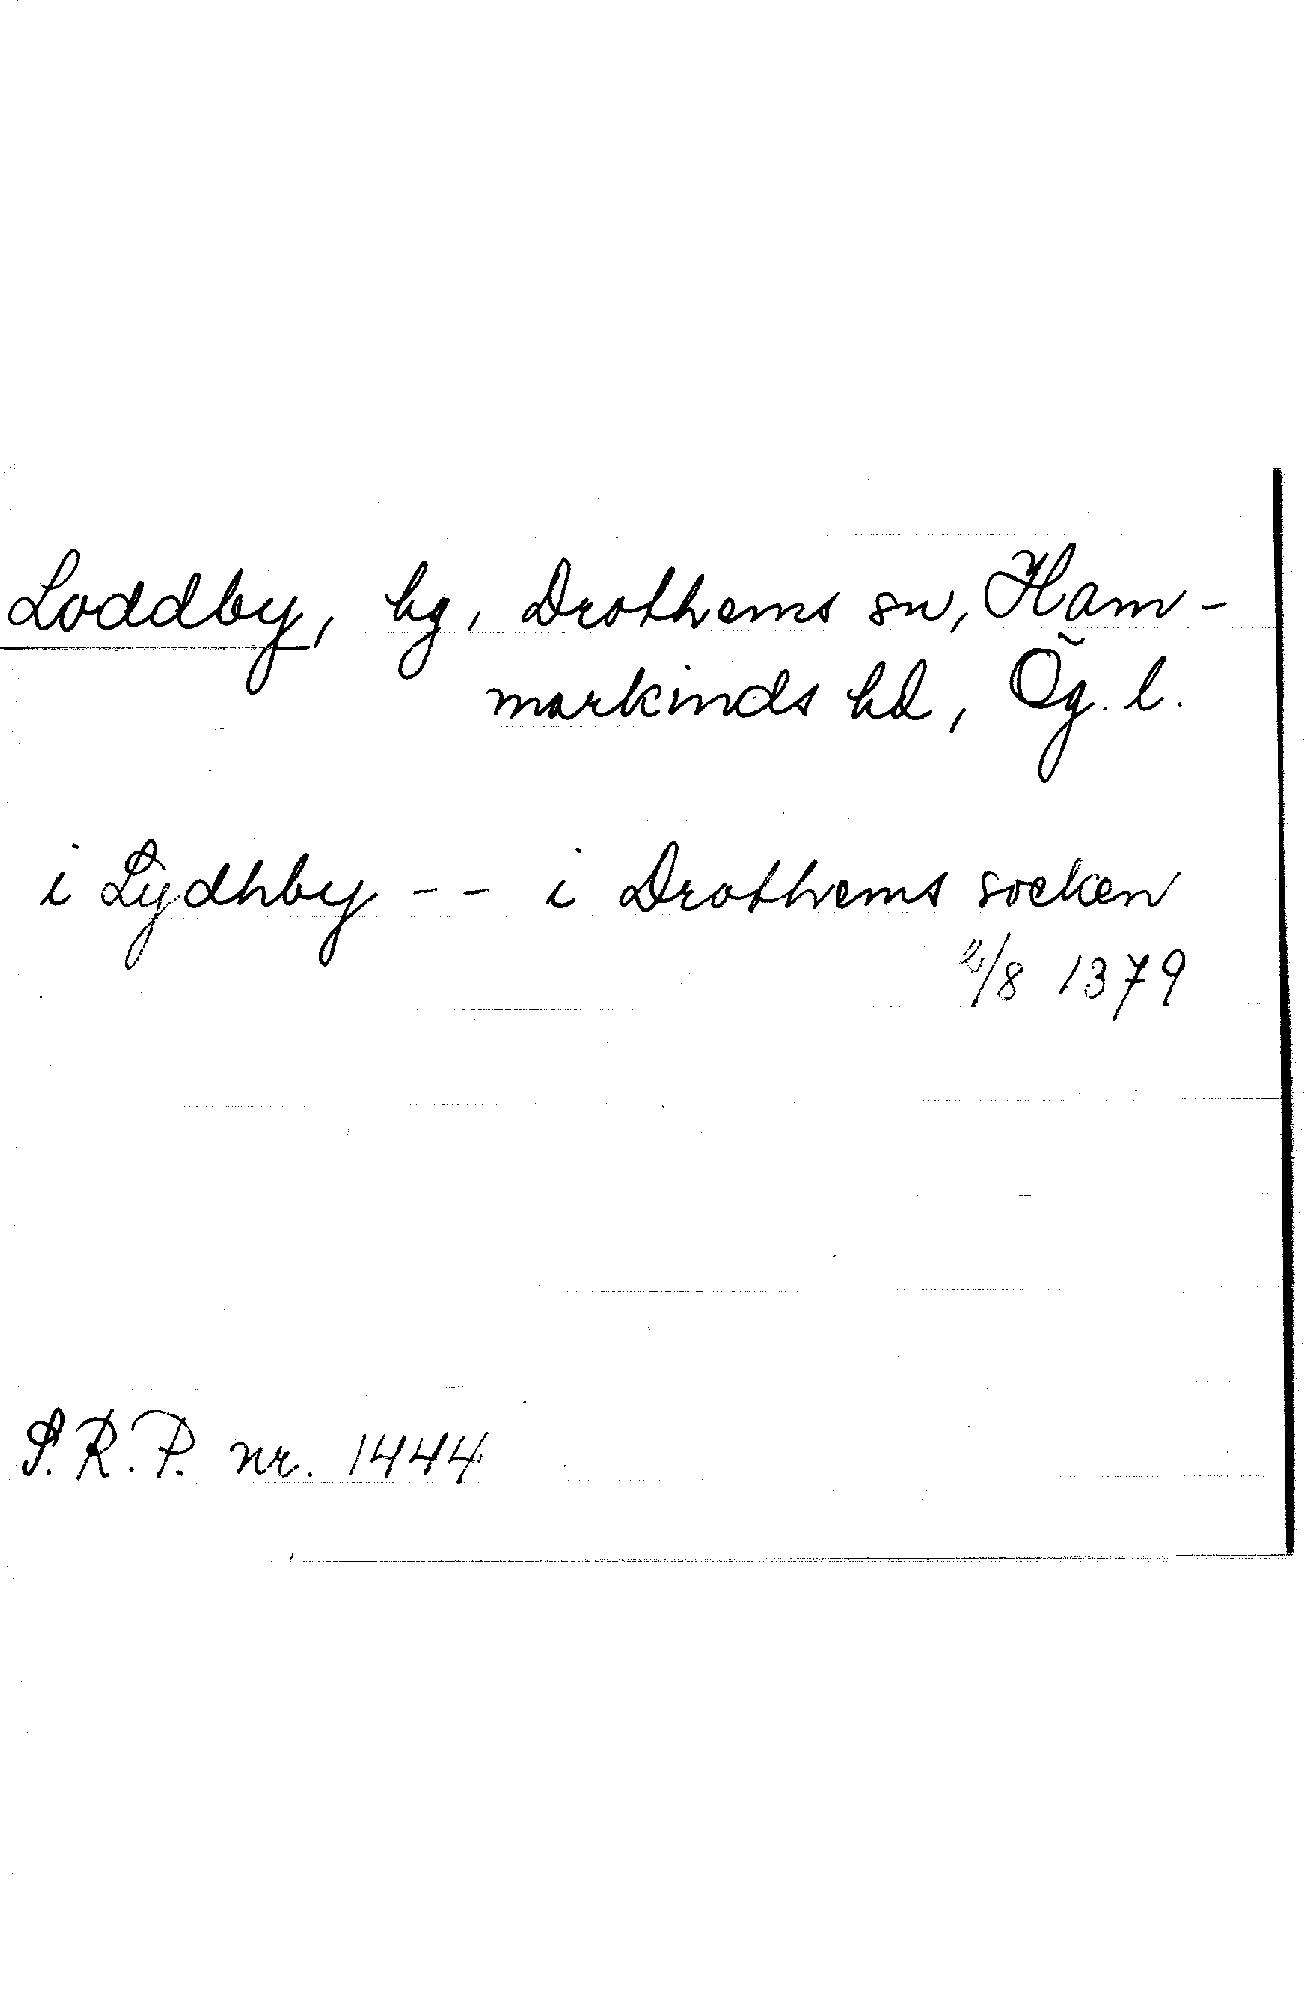 Loddby, hg, Drothems sn, Ham-
markinds hd, Ög. l.
i Lydhby -- i Drothems socken
2/8 1379
S.R.P. nr. 1444